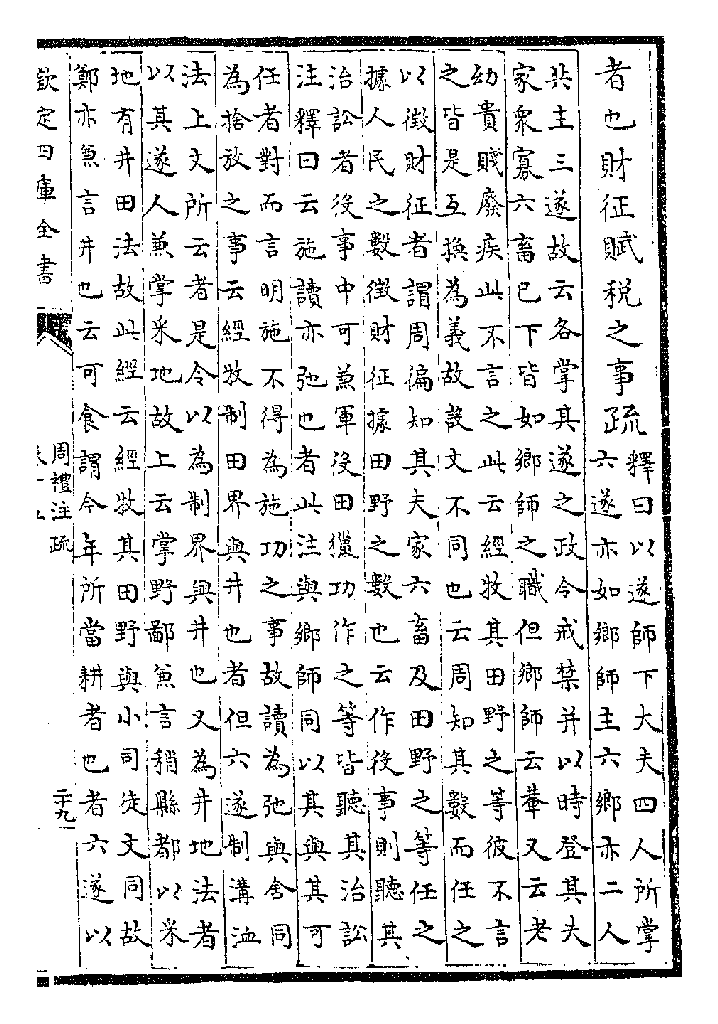 者也財征賦税之事疏
釋曰以遂師下大夫四人所掌
六遂亦如鄉師主六鄉亦二人
共主三遂故云各掌其遂之政令戒禁并以時登其夫
家衆寡六畜已下皆如鄉師之職但鄉師云輦又云老
幼貴賤廢疾此不言之此云經牧其田野之等彼不言
之皆是互換為義故設文不同也云周知其數而任之
以徵財征者謂周徧知其夫家六畜及田野之等任之
據人民之數徵財征據田野之數也云作役事則聽其
治訟者役事中可兼軍役田獵功作之等皆聽其治訟
注釋曰云施讀亦弛也者此注與鄉師同以其與其可
任者對而言明施不得為施功之事故讀為弛與舍同
為捨放之事云經牧制田界與井也者但六遂制溝洫
法上文所云者是令以為制界與井也又為井地法者
以其遂人兼掌采地故上云掌野鄙兼言稍縣都以采
地有井田法故此經云經牧其田野與小司徒文同故
鄭亦兼言井也云可食謂今年所當耕者也者六遂以
欽定四庫全書
周禮注疏
二十九